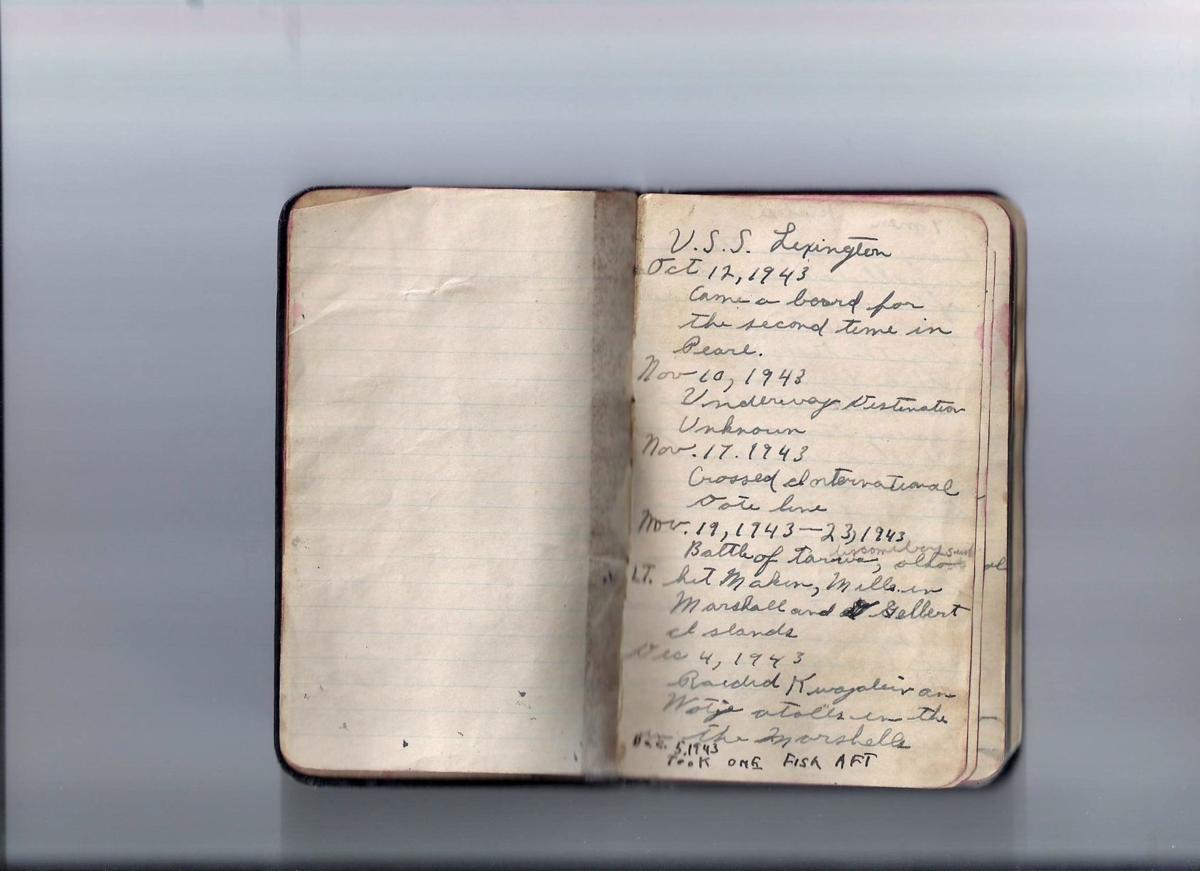 U.S.S. Lexington
Oct 12, 1943
Came a board for
the second time in
Pearl.
Nov 10, 1943
Underway Destination
Unknown
Nov. 17. 1943
Crossed International
Date line
Nov. 19, 1943—23, 1943
Battle of Tarwa, also
LT. hit Makin, Mille in
Marshall and Gelbert
Islands
Dec 4, 1943
Raided Kwajalein an
Wotje atolls in the
the Marshalls
Dec. 5, 1943
TOOK ONE FISH AFT